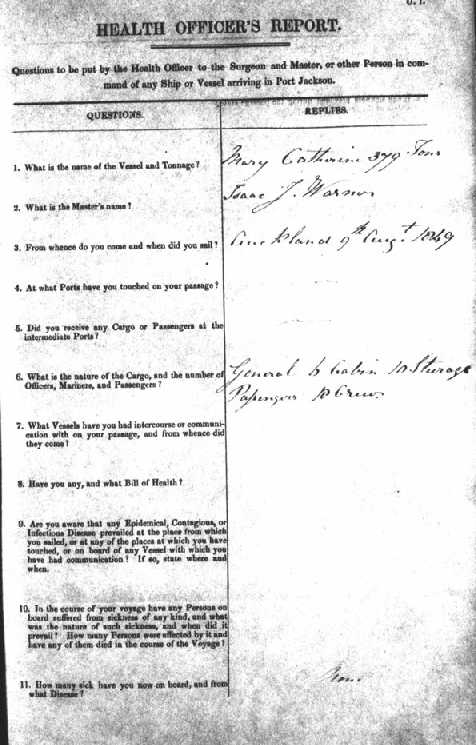 HEALTH OFFICER'S REPORT.
Questions to be put by the Health Officer to the Surgeon and Master, or other Person in com-
mand of any Ship or Vessel arriving in Port Jackson.
QUESTIONS.
REPLIES.
1. What is the name of the Vessel and Tonnage?
Mary Catherine 379 Tons
2. What is the Master's name?
Isaac J. Warner
3. From whence do you come and when did you sail?
Auckland 9th Augt. 1849
4. At what Ports have you touched on your passage?
5. Did you receive any Cargo or Passengers at the
intermediate Ports?
6. What is the nature of the Cargo, and the number of
Officers, Mariners, and Passengers?
General Cabin Steerage
Passengers Crew
7. What Vessels have you had intercourse or communi-
cation with on your passage, and from whence did
they come?
8. Have you any, and what Bill of Health?
9. Are you aware that any Epidemical, Contagious, or
Infectious Disease prevailed at the place from which
you sailed, or at any of the places at which you have
touched, or on board of any Vessel with which you
have had communication? If so, state where and
when.
10. In the course of your voyage have any Persons on
board suffered from sickness of any kind, and what
was the nature of such sickness, and when did it
prevail? How many Persons were affected by it and
have any of them died in the course of the Voyage?
11. How many sick have you now on board, and from
what Disease?
None